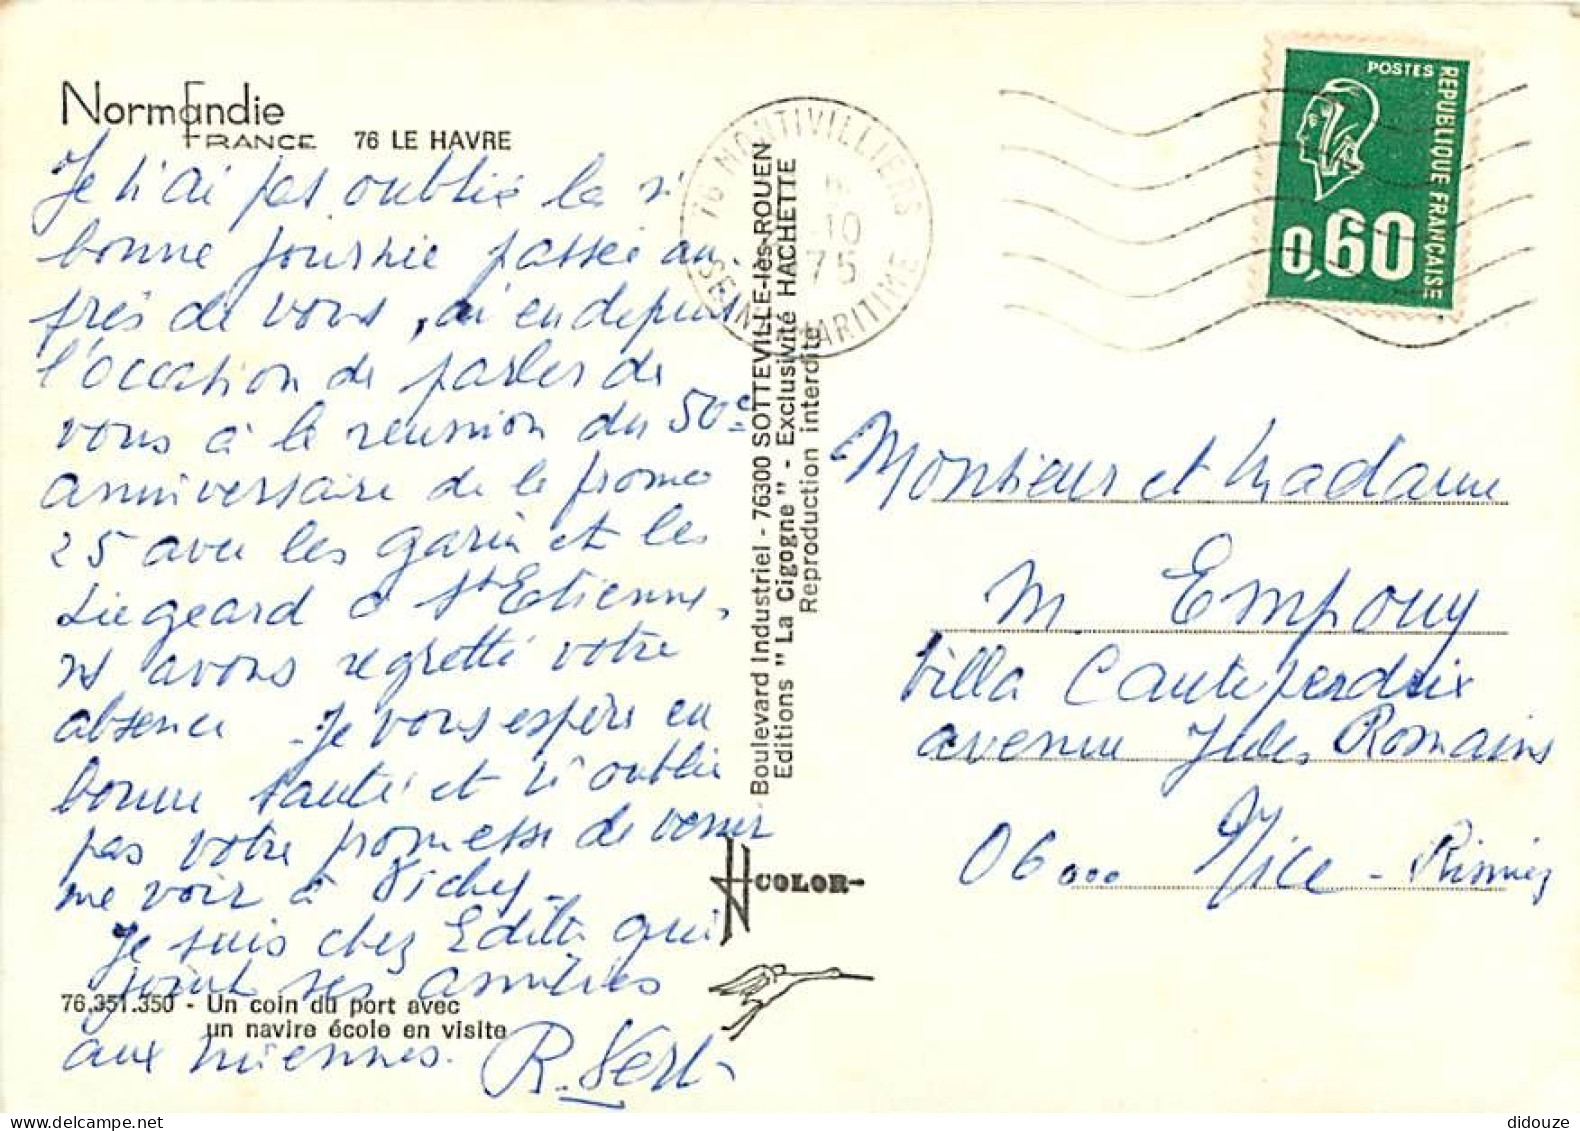 Normandie
FRANCE 76 LE HAVRE
Je n'ai pas oublié la si
bonne journée passée au-
près de vous, ai eu depuis
l'occasion de parler de
vous à la réunion du 50e
anniversaire de la promo
25 avec les Garin et les
Liegeard à St Etienne,
ns avons regretté votre
absence - Je vous espère en
bonne santé et n'oublie
pas votre promesse de venir
me voir à Vichy -
Je suis chez Edith qui
joint ses amitiés
aux miennes.
76.351.350 - Un coin du port avec
un navire école en visite
76 MONTIVILLIERS
10
75
SEINE MARITIME
Boulevard Industriel - 76300 SOTTEVILLE-lès-ROUEN
Editions "La Cigogne" - Exclusivité HACHETTE
Reproduction interdite
COLOR
POSTES
REPUBLIQUE FRANÇAISE
0,60
Monsieur et Madame
M. Empouy
Villa Canteperdrix
avenue Jules Romains
06000 Nice -
didouze